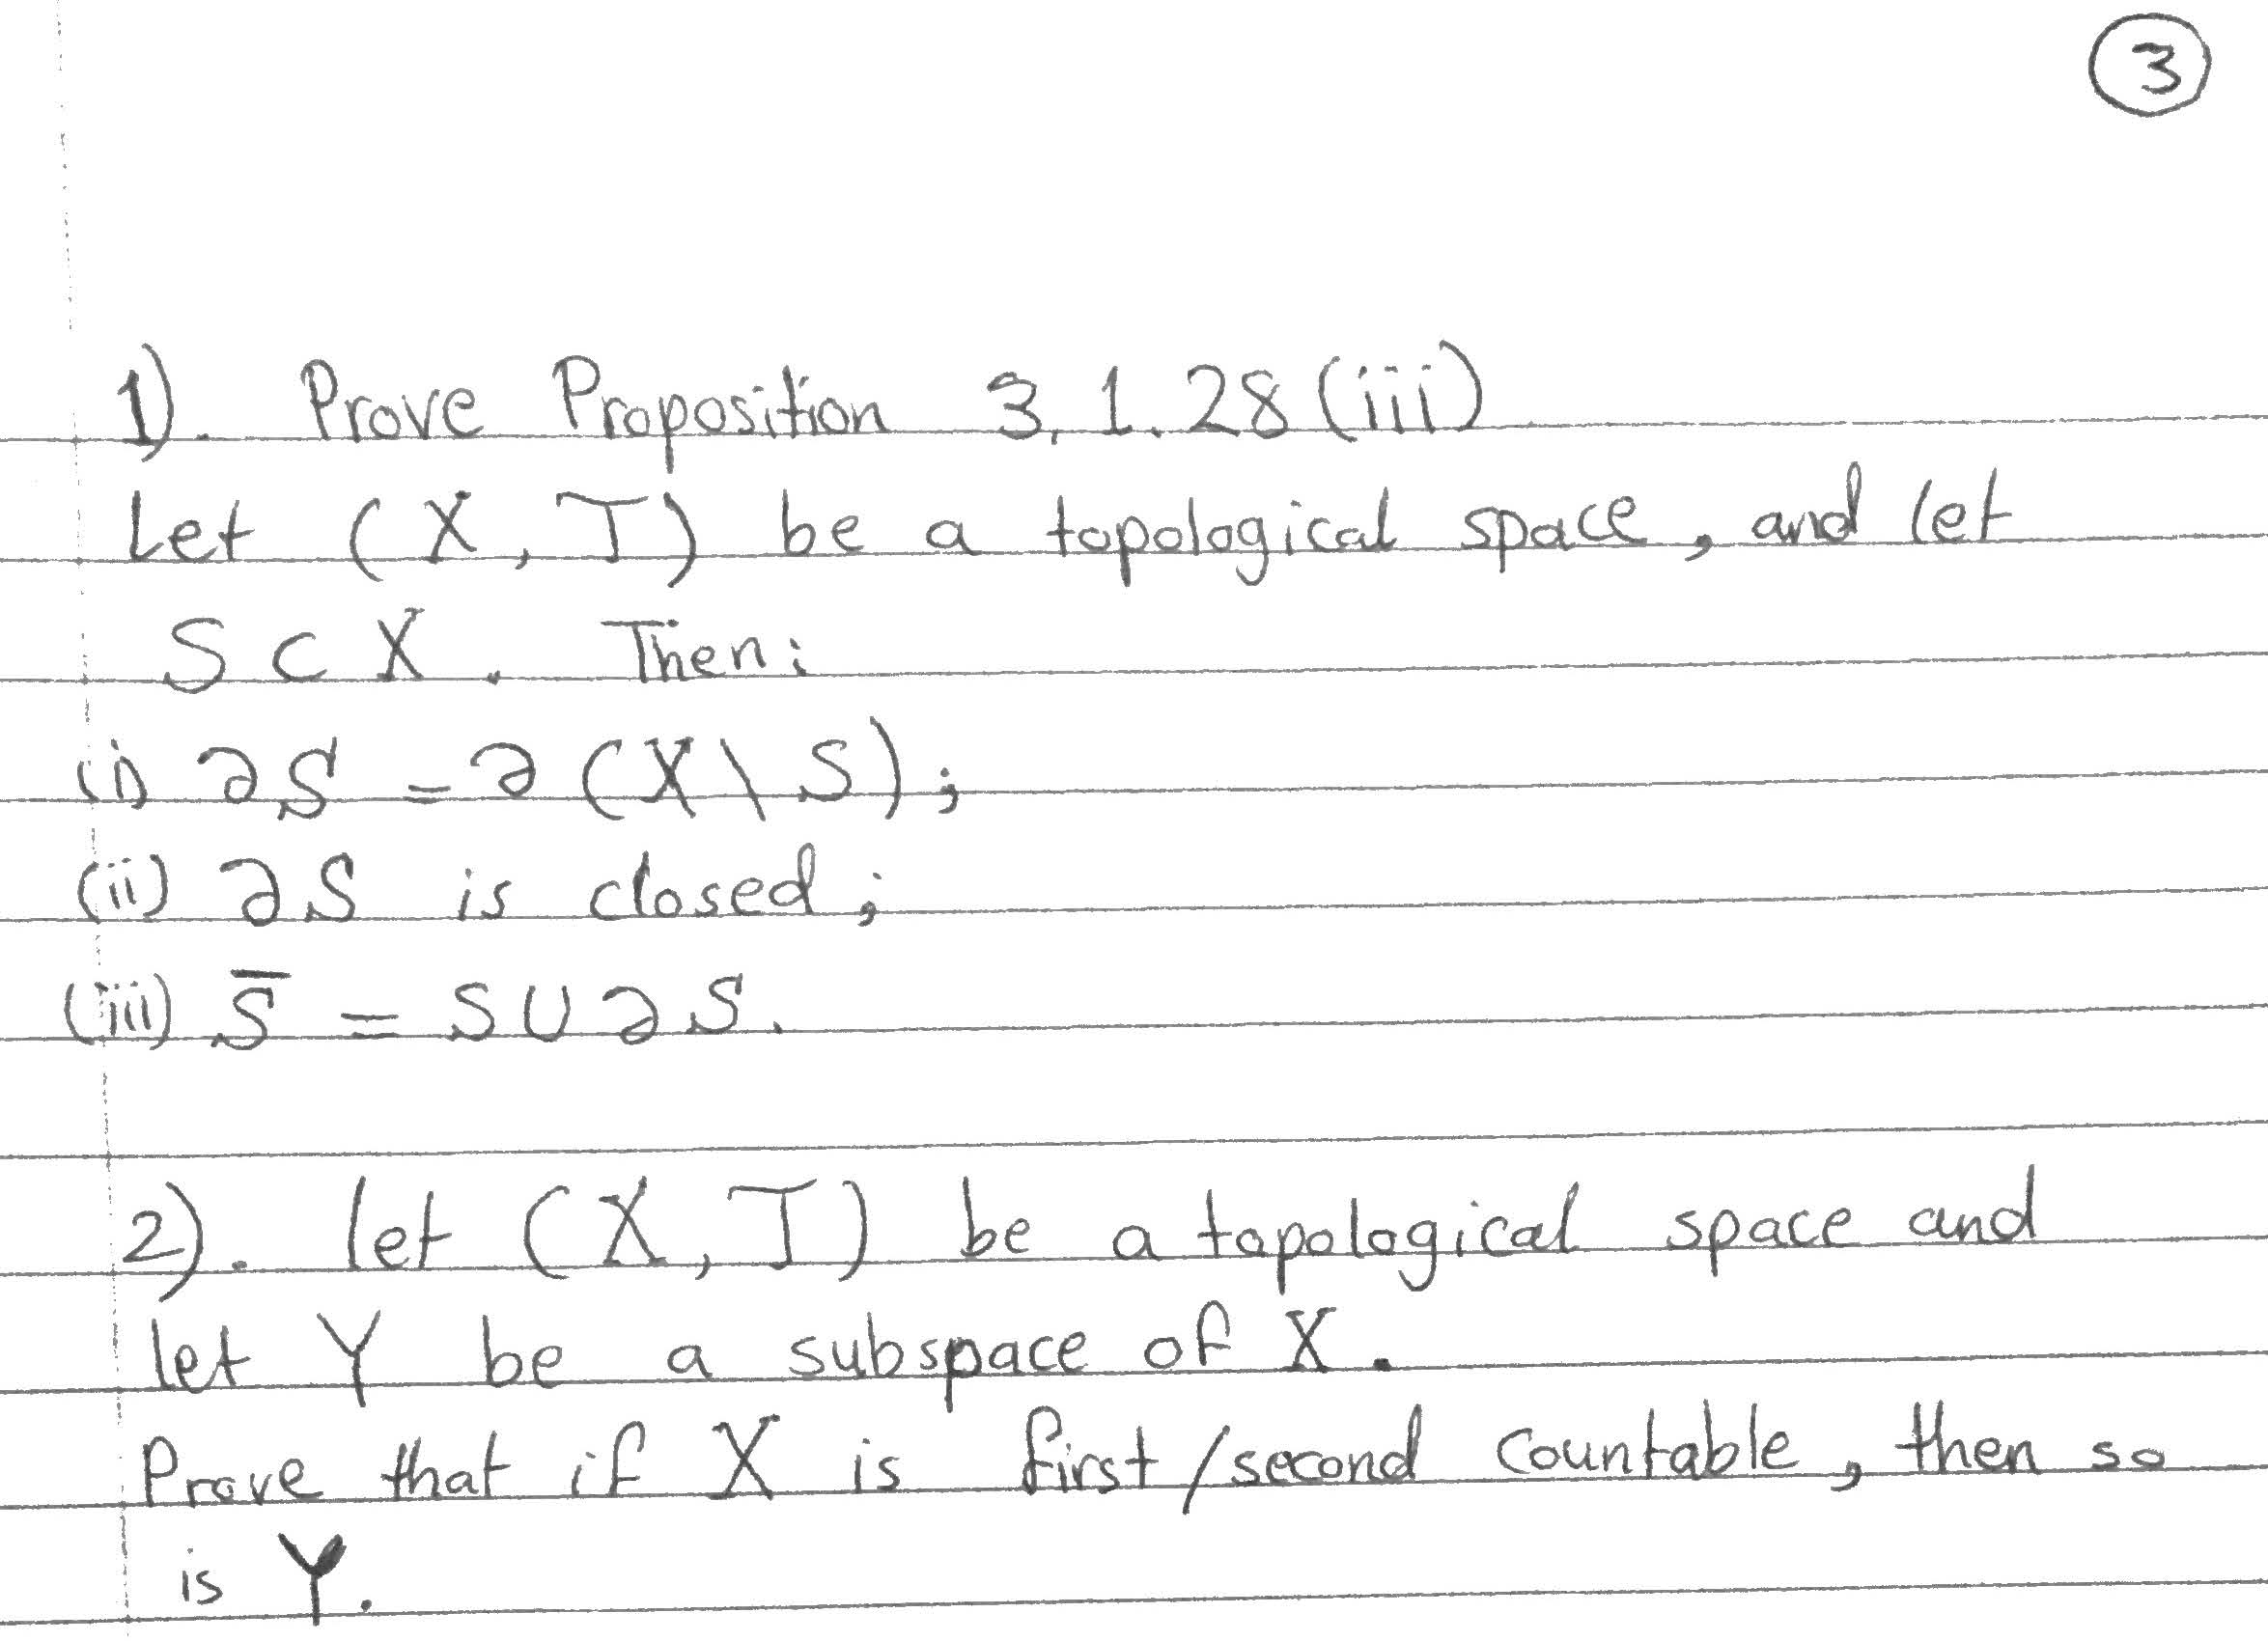 3
1). Prove Proposition 3.1.28 (iii)
Let (X, T) be a topological space, and let
S ⊂ X. Then:
(i) ∂S = ∂(X\S);
(ii) ∂S is closed;
(iii) S̅ = S∪∂S.
2). let (X, T) be a topological space and
let Y be a subspace of X.
Prove that if X is first/second countable, then so
is Y.